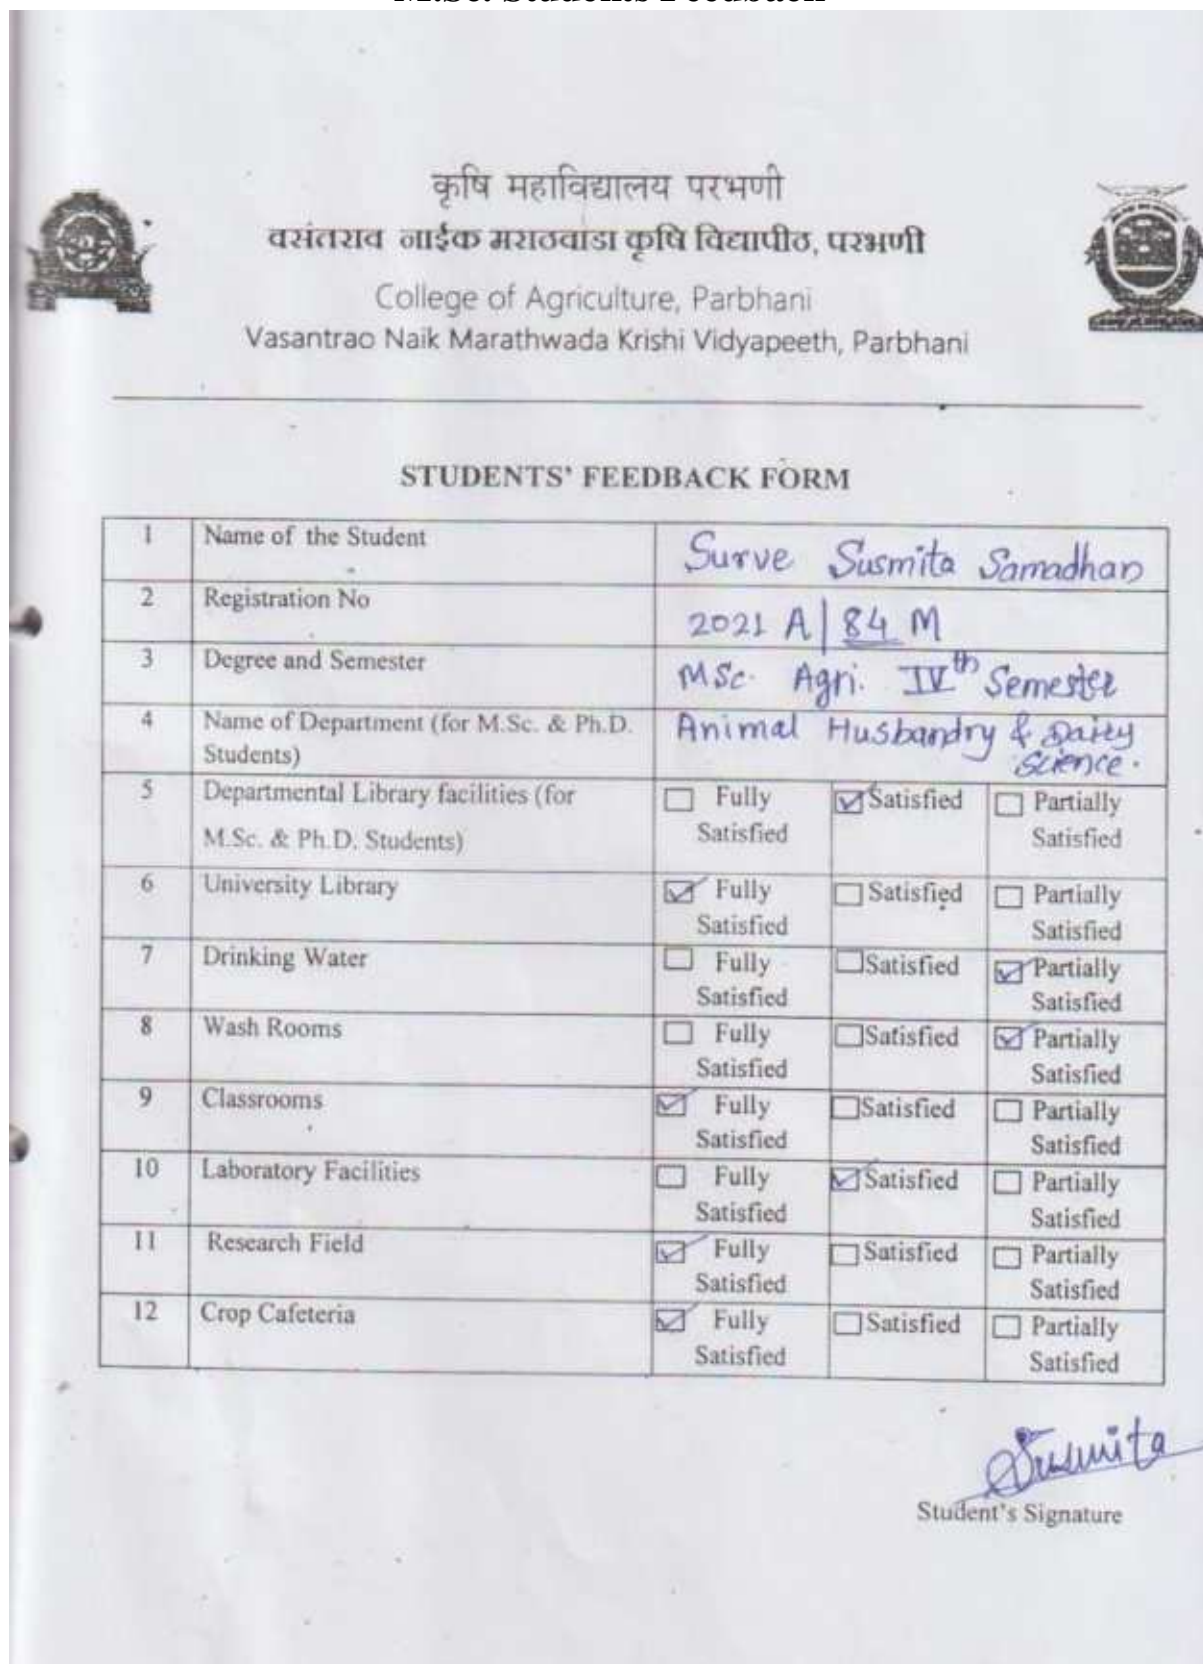 M.Sc. Students Feedback
कृषि महाविद्यालय परभणी
वसंतराव नाईक मराठवाडा कृषि विद्यापीठ, परभणी
College of Agriculture, Parbhani
Vasantrao Naik Marathwada Krishi Vidyapeeth, Parbhani
STUDENTS' FEEDBACK FORM
1 Name of the Student Surve Susmita Samadhan
2 Registration No 2021 A/84 M
3 Degree and Semester MSc. Agri. IVth Semester
4 Name of Department (for M.Sc. & Ph.D. Students) Animal Husbandry & Dairy Science.
5 Departmental Library facilities (for M.Sc. & Ph.D. Students) ☐ Fully Satisfied ☑ Satisfied ☐ Partially Satisfied
6 University Library ☑ Fully Satisfied ☐ Satisfied ☐ Partially Satisfied
7 Drinking Water ☐ Fully Satisfied ☐ Satisfied ☑ Partially Satisfied
8 Wash Rooms ☐ Fully Satisfied ☐ Satisfied ☑ Partially Satisfied
9 Classrooms ☑ Fully Satisfied ☐ Satisfied ☐ Partially Satisfied
10 Laboratory Facilities ☐ Fully Satisfied ☑ Satisfied ☐ Partially Satisfied
11 Research Field ☑ Fully Satisfied ☐ Satisfied ☐ Partially Satisfied
12 Crop Cafeteria ☑ Fully Satisfied ☐ Satisfied ☐ Partially Satisfied
Susmita
Student's Signature